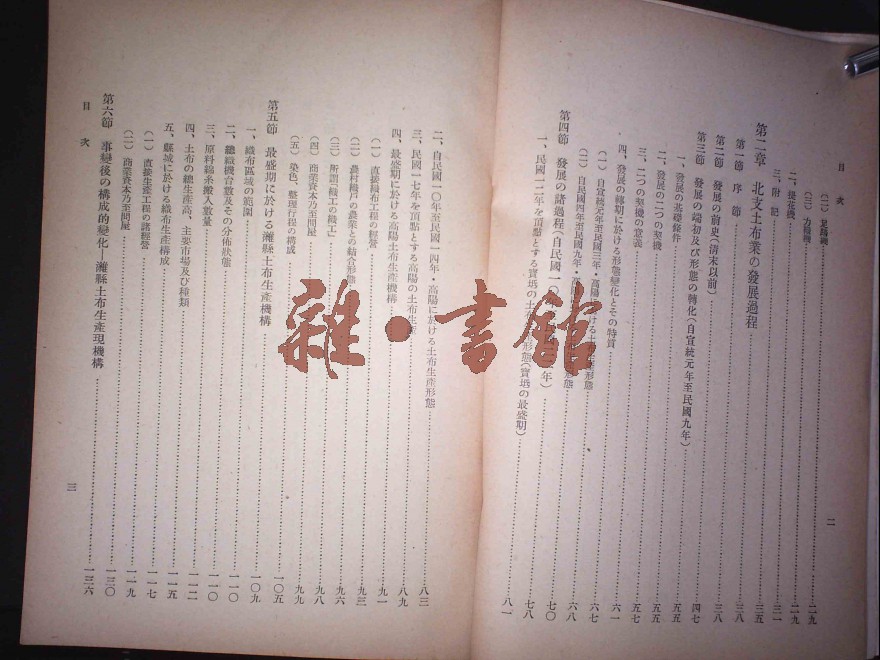 目次
(二)
(三)力織機 二九
二、提花機 二九
三、附記 三一
第二章 北支土布業の發展過程 三五
第一節 序節 三八
第二節 發展の前史(淸末以前) 三八
第三節 發展の端初及び形態の轉化(自宣統元年至民國九年) 四七
一、發展の基礎條件 五五
二、發展の二つの契機 五五
三、二つの契機の意義 五七
四、發展の轉期に於ける形態變化とその特質 六一
(一)自宣統元年至民國三年・高陽に於ける土布 形態 六七
(二)自民國四年至民國九年・高 形態 六八
第四節 發展の諸過程(自民國一〇 年) 七〇
一、民國一二年を頂點とする寶坻の土布 形態(寶坻の最盛期) 七八
八一
二
二、自民國一〇年至民國一四年・高陽に於ける土布生產形態 八三
三、民國一七年を頂點とする高陽の土布生產 八九
四、最盛期に於ける高陽土布生產機構 九一
(一)直接織布工程の經營 九三
(二)農村機戶の農業との結合形態 九六
(三)所謂「機工の機工」 九八
(四)商業資本乃至問屋 九九
(五)染色、整理行程の構成
第五節 最盛期に於ける濰縣土布生產機構 一〇五
一、織布區域の範圍 一〇九
二、織機台數及その分佈狀態 一一〇
三、原料綿糸搬入數量 一一〇
四、土布の總生產高、主要市場及び種類 一一二
五、縣城に於ける織布生產構成 一一五
(一)直接生產工程の諸經營 一一七
(二)商業資本乃至問屋 一一九
一三〇
第六節 事變後の構成的變化—濰縣土布生產現機構 一三六
目次
三
雜・書館